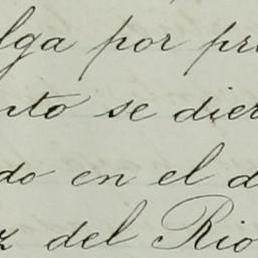 lga por pri
nto se dier
do en el d
z del Rio